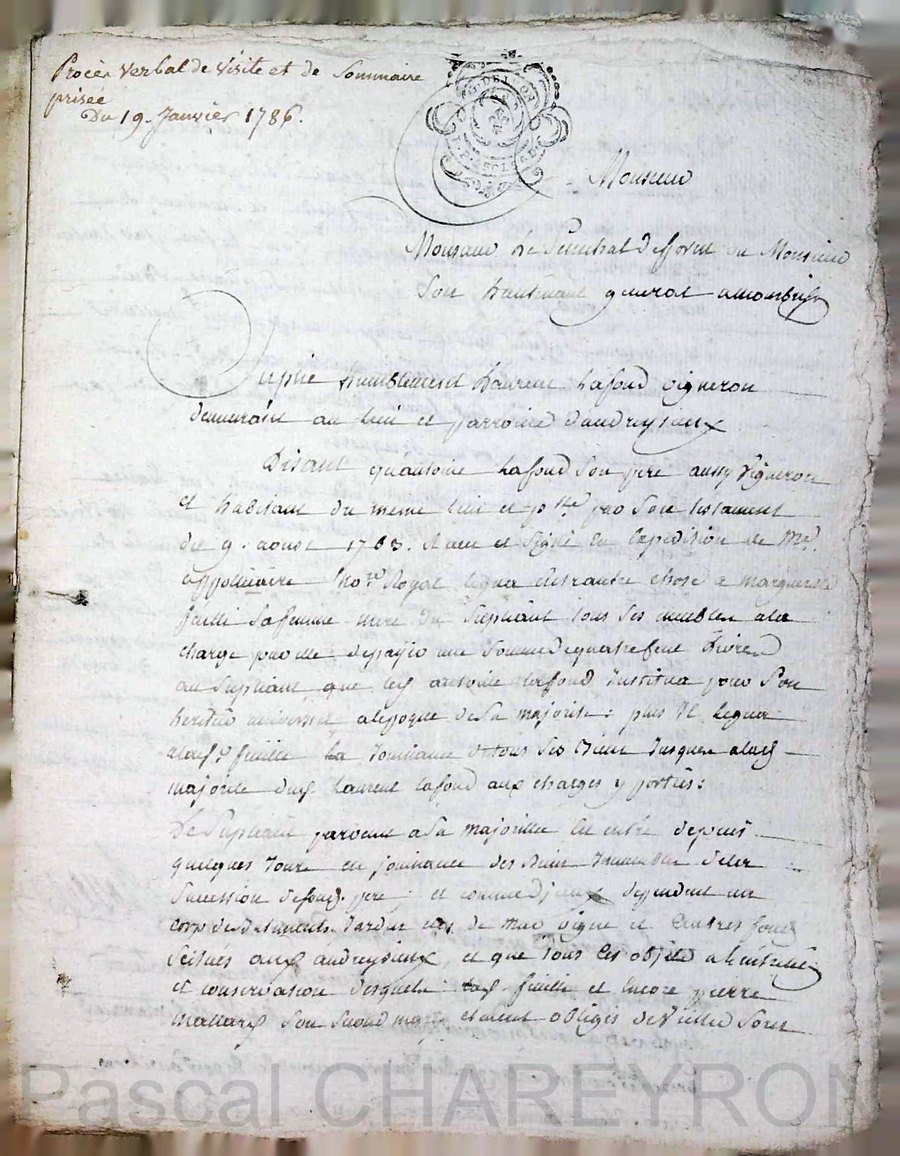 Procès Verbal de Visite et de Sommaire
prisée
Du 19. Janvier 1786.
G. DE LYON
Monsieur
Monsieur le Senechal de forest ou Monsieur
Son Lieutenant general a montbrison
Suplie humblement Laurent Lafond vigneron
demeurant au lieu et parroisse d'andrezieux
Disant qu'antoine Lafond Son pere aussy Vigneron
et habitant du meme lieu et psse par Son testament
du 9. aoust 1763. Receu et Signé En Expedition de Me.
appolinaire nore. Royal legua entrautre chose a Marguerite
feuille Sa femme mere du Supliant tous Ses meubles a la
charge par elle de payer une Somme de quatre Cent Livres
au Supliant que led antoine Lafond Institua pour Son
heritier universel a lepoque de Sa majorité: plus Il legua
a lad. feuille La Jouissance de tous Ses Biens Jusques a la
majorité dud. Laurent Lafond aux charges y portées:
Le Supliant parvenu a Sa majorité En entré depuis
quelques Jours en jouissance des Biens Immeubles de la
Succession de fond. pere; et comme d'jceux dependent un
corps de Batiments Jardin de vigne et autres fonds
Scitués aud andrezieux, et que tous ces objets a l'entretien
et conservation desquels lad feuille et Encore pierre
mallard Son Second mary etoient obligés de Veiller Sont
Pascal CHAREYRON